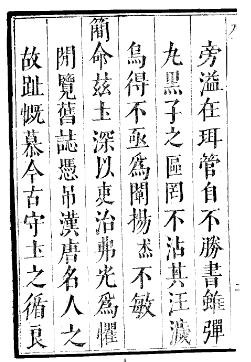 旁溢在珥管自不勝書雖彈
九黑子之區罔不沾其汪濊
烏得不亟爲闡揚㶡不敏
簡命茲土深以吏治弗光爲懼
閒覽舊誌憑吊漢唐名人之
故趾慨慕今古守土之循良